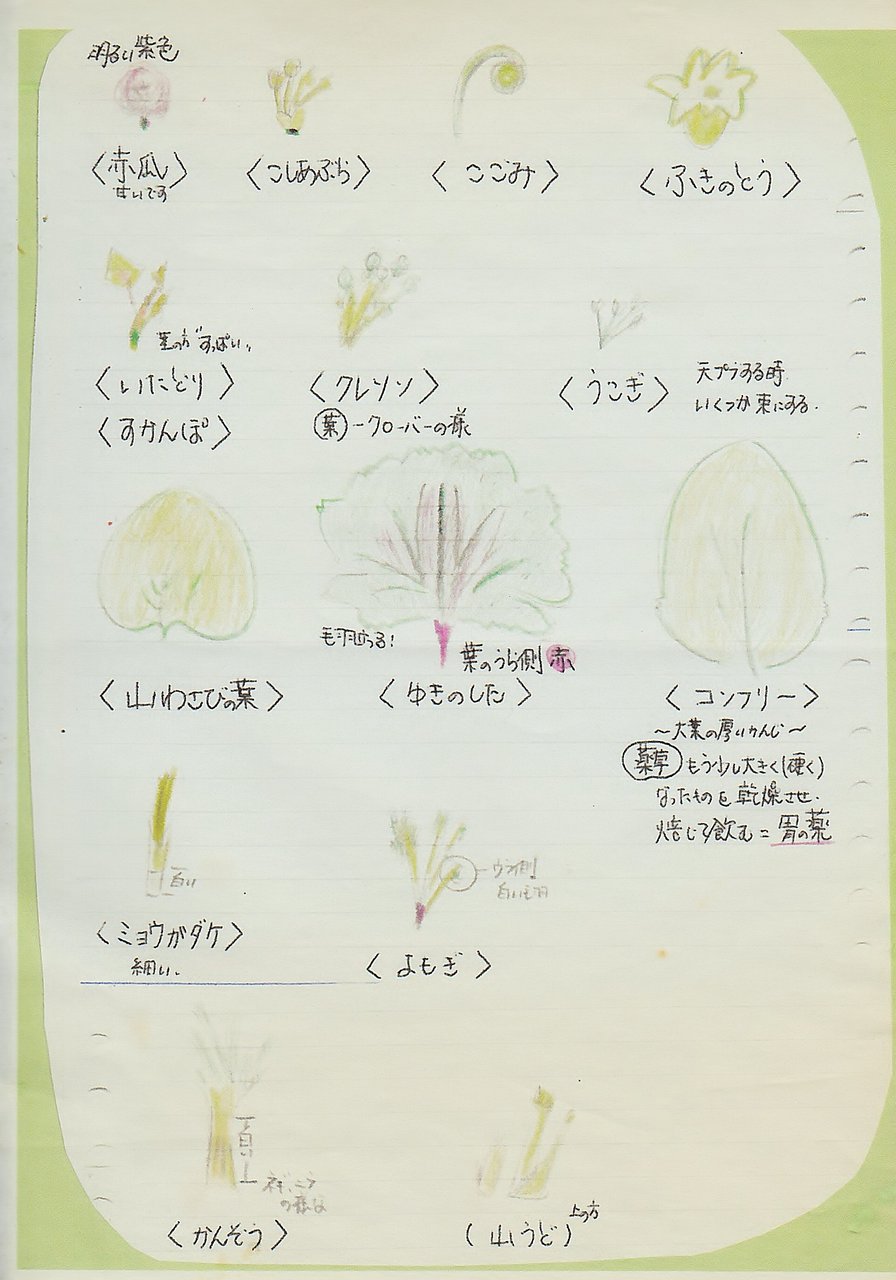 明るい紫色
〈赤瓜〉
甘いです
〈こしあぶら〉
〈こごみ〉
〈ふきのとう〉
茎の方がすっぱい。
〈いたどり〉
〈すかんぽ〉
〈クレソン〉
葉ークローバーの様
〈うこぎ〉
天プラする時
いくつか束にする.
〈山わさびの葉〉
葉のうら側 赤
〈ゆきのした〉
〈コンフリー〉
〜大葉の厚いかんじ〜
薬草 もう少し大きく(硬く)
なったものを乾燥させ.
焙じて飲む=胃の薬
白い
〈ミョウガダケ〉
細い.
ウラ側
白い
〈よもぎ〉
〈かんぞう〉
の様な
(山うど)
上の方